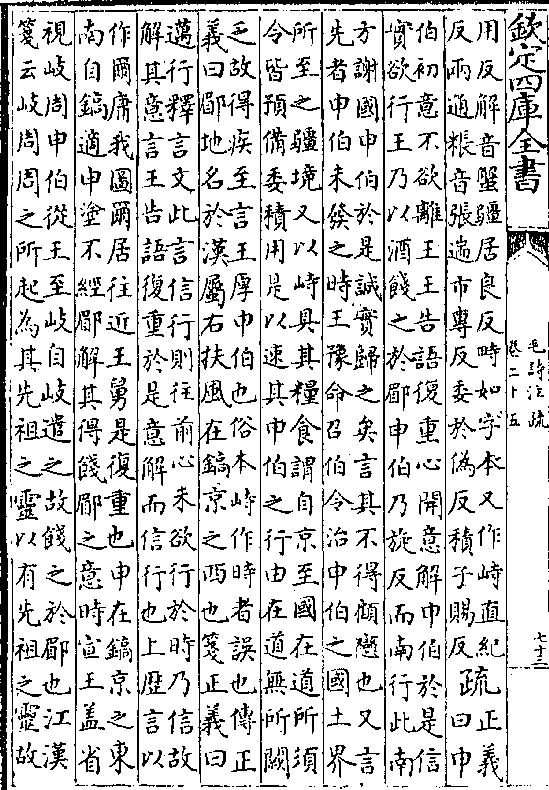 欽定四庫全書
毛詩注疏
卷二十五
七十三
用反解音蟹疆居良反時如字本又作峙直紀
反兩通粻音張遄市專反委於偽反積子賜反
疏
正義
曰申
伯初意不欲離王王告語復重心開意解申伯於是信
實欲行王乃以酒餞之於郿申伯乃旋反而南行此南
方謝國申伯於是誠實歸之矣言其不得顧戀也又言
先者申伯未發之時王豫命召伯令治申伯之國土界
所至之疆境又以峙具其糧食謂自京至國在道所須
令皆預備委積用是以速其申伯之行由在道無所闕
乏故得疾至言王厚申伯也俗本峙作時者誤也傳正
義曰郿地名於漢屬右扶風在鎬京之西也箋正義曰
邁行釋言文此言信行則往前心未欲行於時乃信故
解其意言王告語復重於是意解而信行也上歴言以
作爾庸我圖爾居往近王舅是復重也申在鎬京之東
南自鎬適申塗不經郿解其得餞郿之意時宣王盖省
視岐周申伯從王至岐自岐遣之故餞之於郿也江漢
箋云岐周周之所起為其先祖之靈以有先祖之靈故